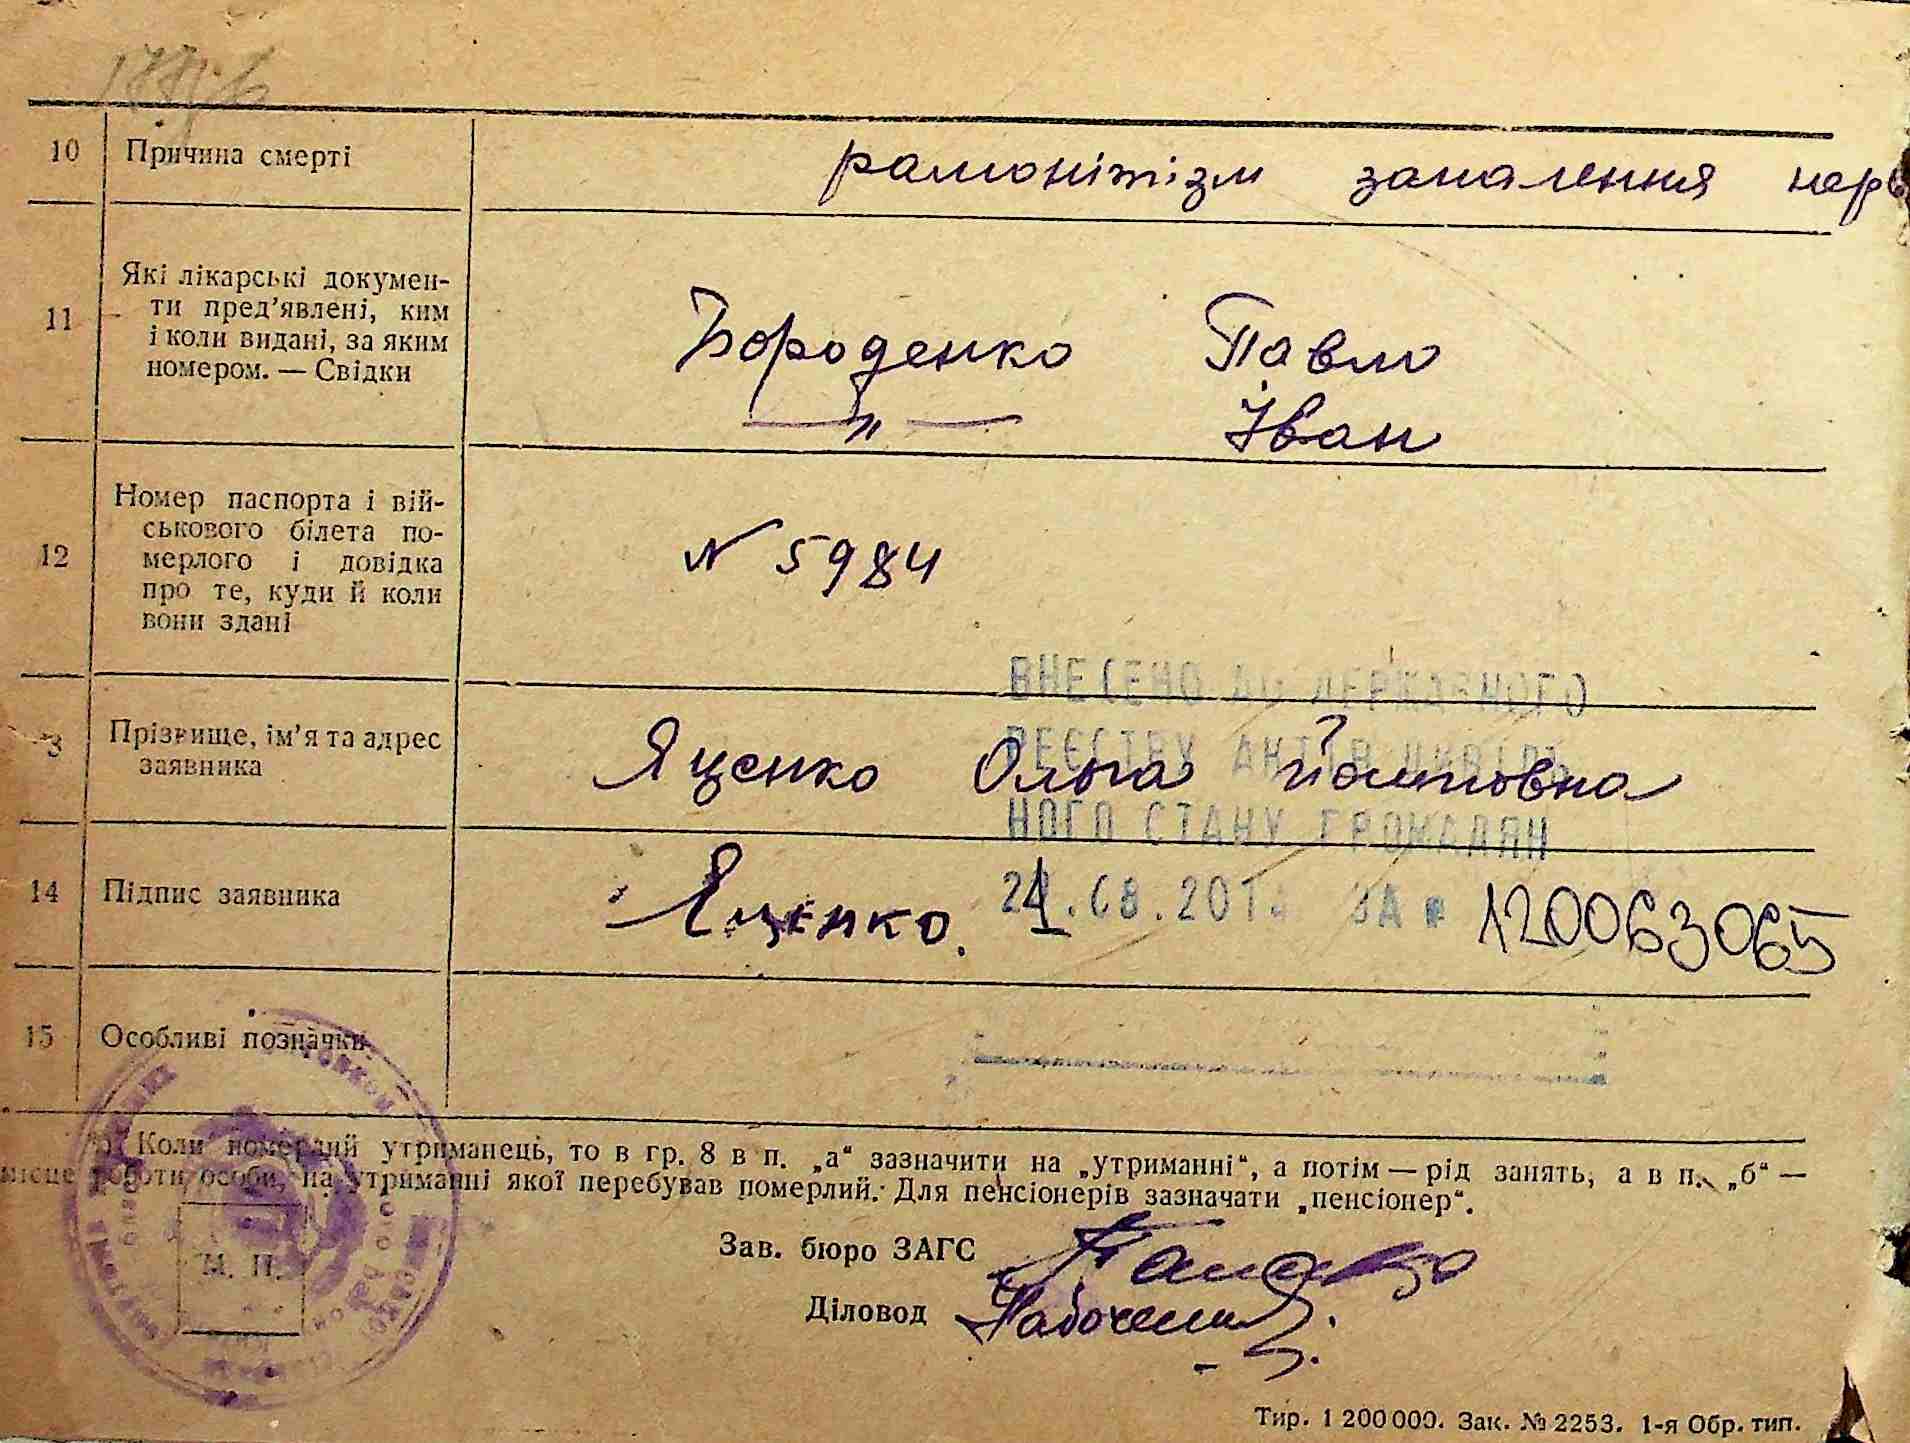 10 Причина смерті
рамонітізм запалення нерв
11 Які лікарські докумен-
ти пред'явлені, ким
і коли видані, за яким
номером. — Свідки
Бороденко Павло
—„— Іван
12 Номер паспорта і вій-
ськового білета по-
мерлого і довідка
про те, куди й коли
вони здані
N 5984
3 Прізвище, ім'я та адрес
заявника
Яценко Ольга
ВНЕСЕНО ДО ДЕРЖАВНОГО
РЕЄСТРУ АКТІВ ЦИВІЛЬ
НОГО СТАНУ ГРОМАДЯН
14 Підпис заявника
Яценко.
.08.201 ЗА № 120063065
15 Особливі позначки
Коли померлий утриманець, то в гр. 8 в п. „а“ зазначити на „утриманні“, а потім — рід занять, а в п. „б“ —
місце роботи особи, на утриманні якої перебував померлий. Для пенсіонерів зазначати „пенсіонер“.
М. П.
Зав. бюро ЗАГС
Діловод
Тир. 1 200 000. Зак. № 2253. 1-я Обр. тип.